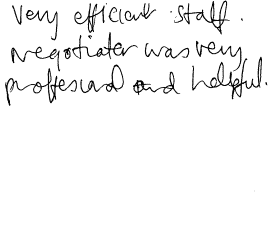 Very efficient staff.
negotiater was very
proffesional and helpful.